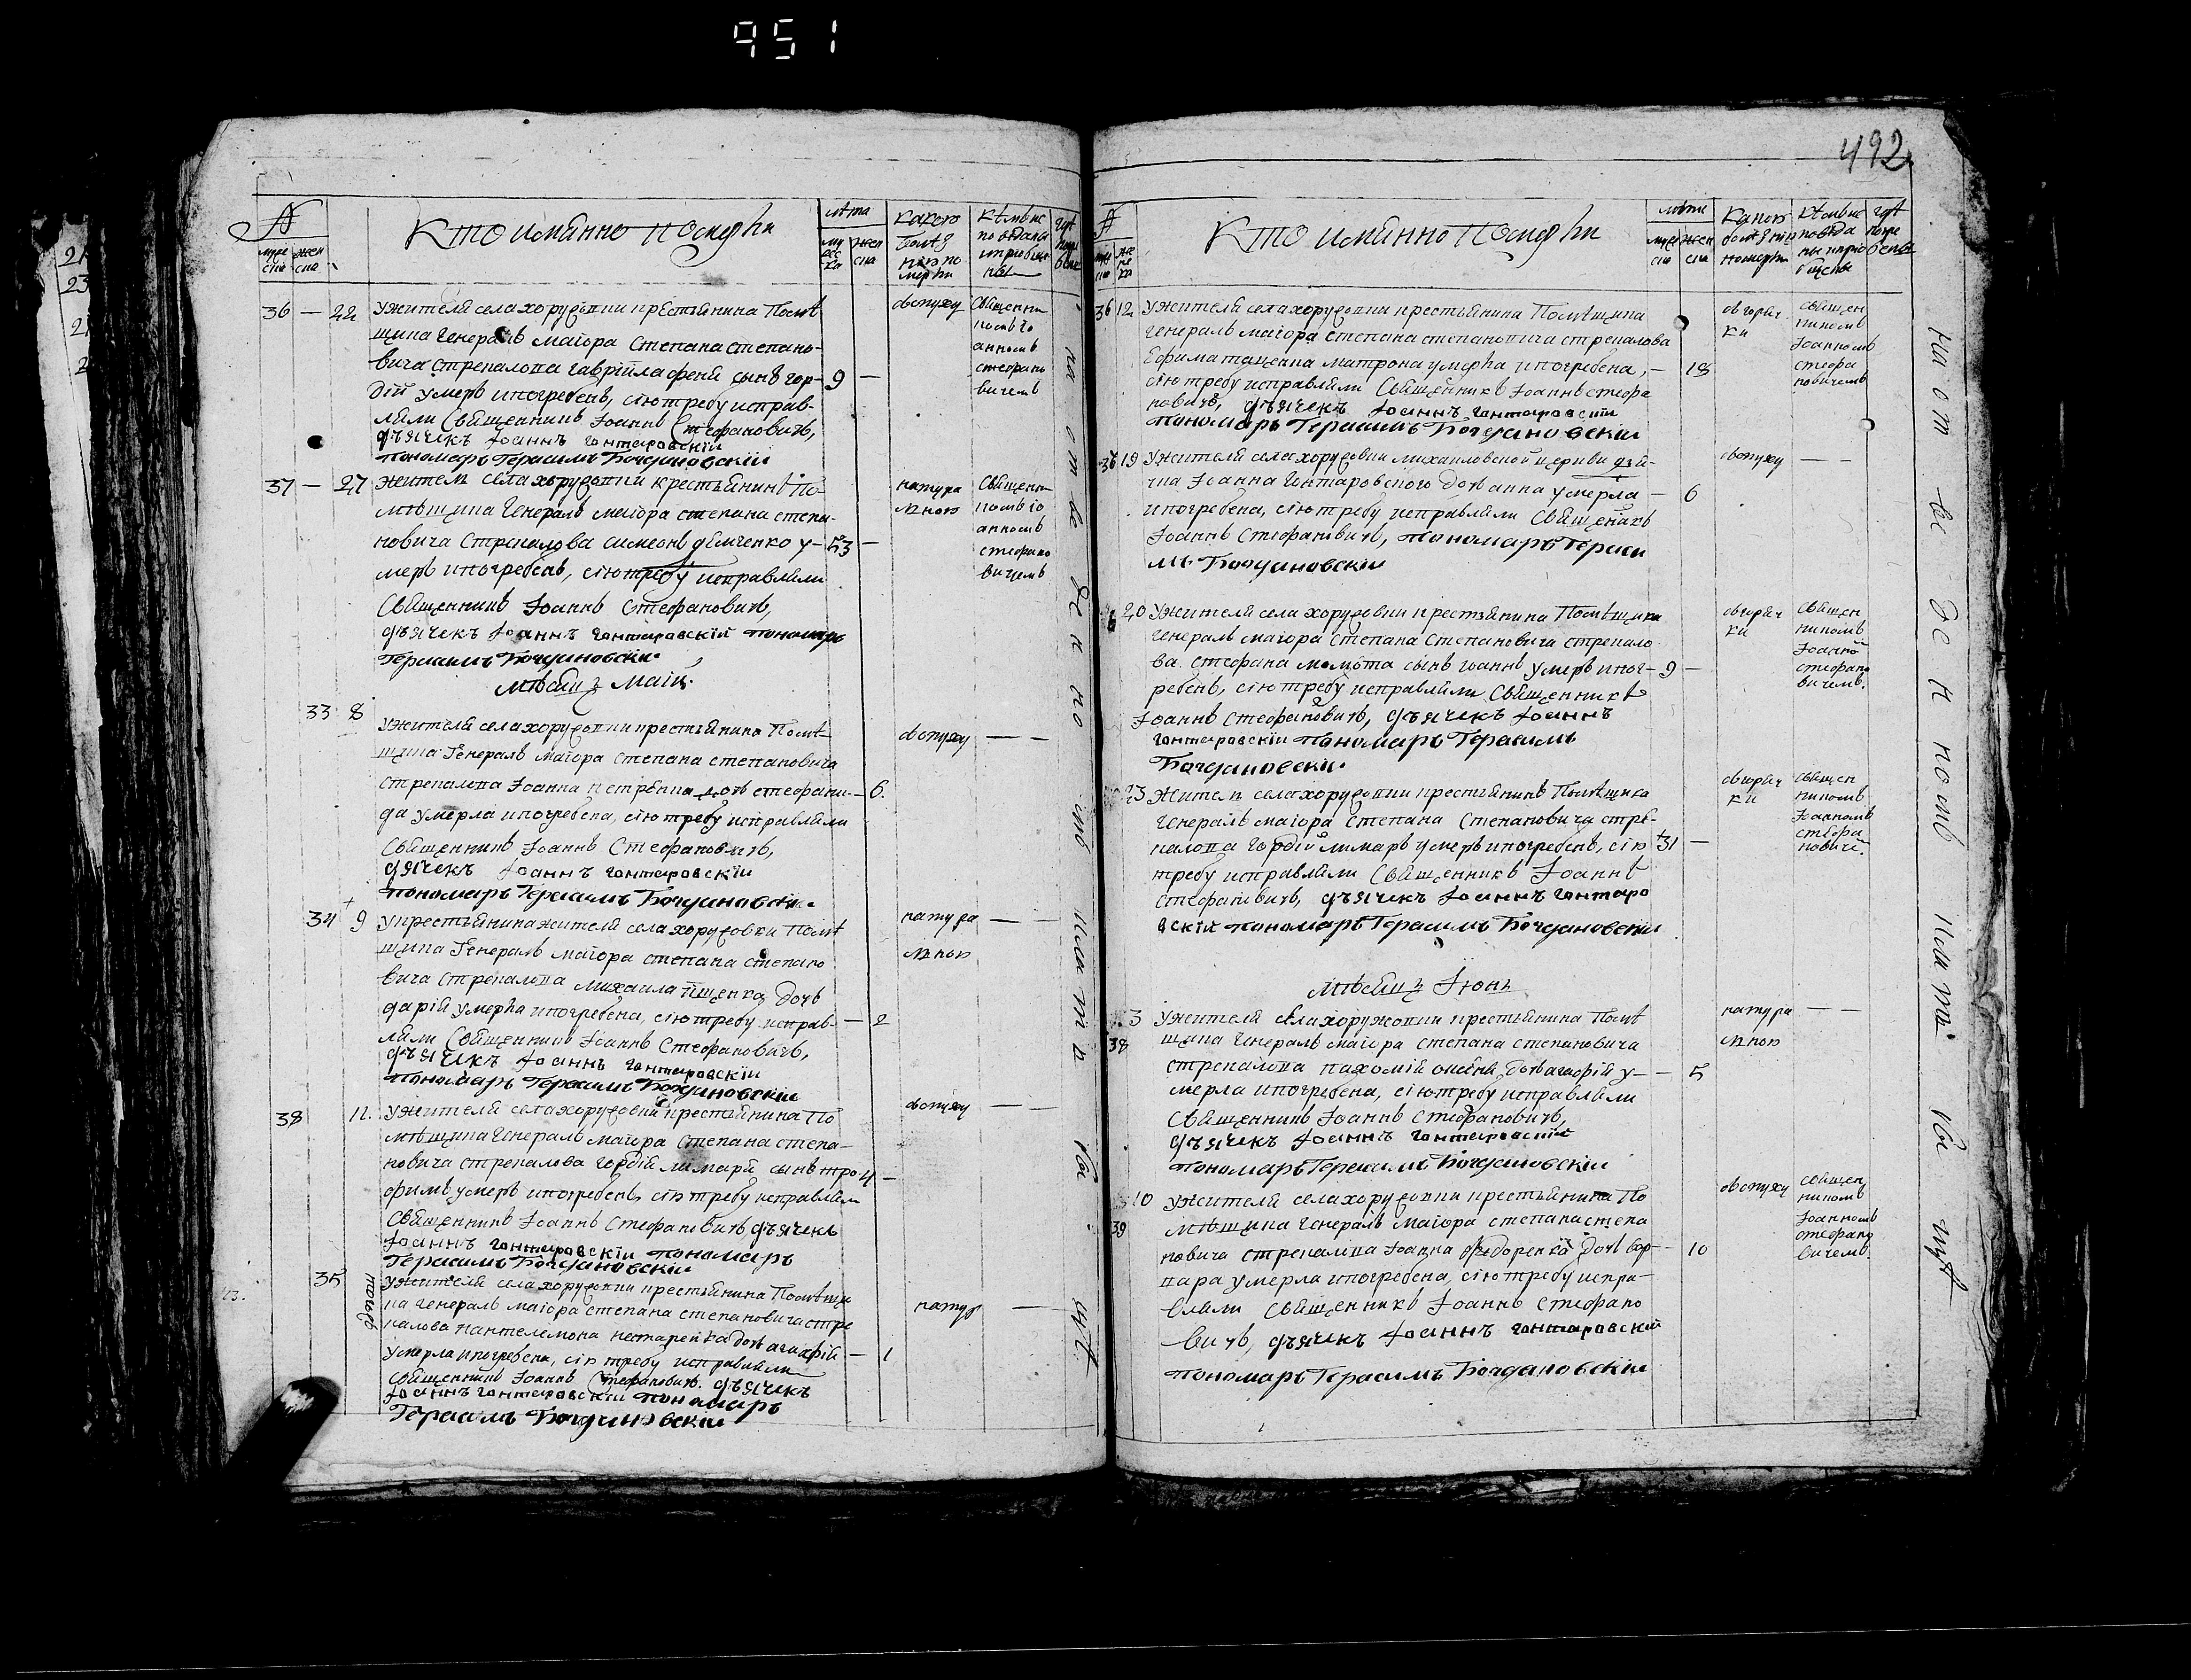 951
№
муже ска
женска
Кто имянно померли
лѣта
мужеска
женска
какою болѣзнию померли
Кѣмъ исповѣданы и приобщены
гдѣ погребены
36 — 22 Ужителя села хоружовки крестьянина Помѣ
щика Генералъ маіора степана степано-
вича стрекалова гаврійла сынъ гор- 9 —
дій умеръ ипогребенъ, сію требу исправ-
ляли Священникъ Іоаннъ Стефановичъ,
дьячекъ Іоаннъ гонтаровскій
пономаръ Герасимъ Богдановскій
овоспу
Священни
комъ Іо
анномъ
стефано
вичемъ
37 — 27 житель села хоружовки крестьянинъ По-
мѣщика Генералъ маіора степана степа-
новича Стрекалова симеонъ демченко у- 53 —
меръ ипогребенъ, сію требу исправляли
Священникъ Іоаннъ Стефановичъ,
дьячекъ Іоаннъ гонтаровскій пономаръ
Герасимъ Богдановскій
натура
лною
Священ
комъ Іо
анномъ
стефано
вичемъ
Мѣсяцъ Маій
33 8
Ужителя села хоружовки крестьянина Помѣ
щика Генералъ маіора степана степановича
стрекалова Іоанна дочъ стефани- — 6.
да умерла ипогребена, сію требу исправляли
Священникъ Іоаннъ Стефановичъ,
дячекъ Іоаннъ гонтаровскій
пономаръ Герасимъ Богдановскій
— —
34 9 Укрестьянина жителя села хоружовки Помѣ
щика Генералъ маіора степана степано
вича Стрекалова михаила дочъ
дарій умерла ипогребена, сію требу исправ- — 2
ляли Священникъ Іоаннъ Стефановичъ,
дьячекъ Іоаннъ гонтаровскій
пономаръ Герасимъ Богдановскій
натура — —
лною
38 12. Ужителя села хоружовки крестьянина По
мѣщика Генералъ маіора степана степа-
новича стрекалова гордій лимаря сынъ тро 4 —
фимъ умеръ ипогребенъ, сію требу исправляли
Священникъ Іоаннъ Стефановичъ дьячекъ
Іоаннъ гонтаровскій пономаръ
Герасимъ Богдановскій
— —
35 тогожъ
Ужителя села хоружовки крестьянина Помѣщи
ка генералъ маіора степана степановича стре
калова пантелемона нестаренка дочъ агафій — 1
умерла ипогребена, сію требу исправляли
Священникъ Іоаннъ Стефановичъ. дьячекъ
Іоаннъ гонтаровскій пономаръ
Герасимъ Богдановскій
натур —
492
№
Кто имянно Померли
лѣта
муже ска
жен ска
Какою болѣзнию померли
Кѣмъ исповѣданы и приобщены
гдѣ погребены
36 12 Ужителя села хоружовки крестьянина Помѣщика
генералъ маіора степана степановича стрекалова
Ефима матрона умерла ипогребена, — 18
сію требу исправляли Священникъ Іоаннъ стефа
новичъ, дьячекъ Іоаннъ гонтаровскій
пономаръ Герасимъ Богдановскій
овгоряч
ки
Священ
никомъ
Іоанномъ
стефа
новичемъ
36 19 Ужителя села хоружовки михайловской церкви дья-
чка Іоанна Гонтаровского дочъ анна умерла — 6
ипогребена, сію требу исправляли Священникъ
Іоаннъ Стефановичъ, пономаръ Гераси
мъ Богдановскій
— —
20 Ужителя села хоружовки крестьянина Помѣщика
генералъ маіора Степана Степановича стрекало
ва. стефана мамота сынъ іоаннъ умеръ ипог- 9 —
ребенъ, сію требу исправляли Священникъ
Іоаннъ стефановичъ, дьячекъ Іоаннъ
гонтаровскій пономаръ Герасимъ
Богдановскій
овгоряч
ки
Священ
никомъ
Іоанно
стефано
вичемъ.
23 Житель села хоружовки крестьянинъ Помѣщика
генералъ маіора Степана Степановича стре-
калова гордій лимаръ умеръ ипогребенъ, сію 31 —
требу исправляли Священникъ Іоаннъ
стефановичъ, дьячекъ Іоаннъ гонтаро
вскій пономаръ Герасимъ Богдановскій
овгоряч
ки
священ
никомъ
Іоанномъ
стефа
новиче.
Мѣсяцъ Іюнь
3 Ужителя села хоружовки крестьянина Помѣ
38 щика генералъ маіора степана степановича
стрекалова пахомій дочъ агафій у- — 5
мерла ипогребена, сію требу исправляли
Священникъ Іоаннъ Стефановичъ,
дьячекъ Іоаннъ гонтаровскій
пономаръ Герасимъ Богдановскій
натура — —
лною
10 Ужителя села хоружовки крестьянина По
39 мѣщика генералъ маіора степана степа
новича стрекалова Іоанна федоренка дочъ вар- — 10
вара умерла ипогребена, сію требу испра-
вляли Священникъ Іоаннъ Стефано
вичъ, дьячекъ Іоаннъ гонтаровскій
пономаръ Герасимъ Богдановскій
священ
никомъ
Іоанномъ
стефано
вичемъ.